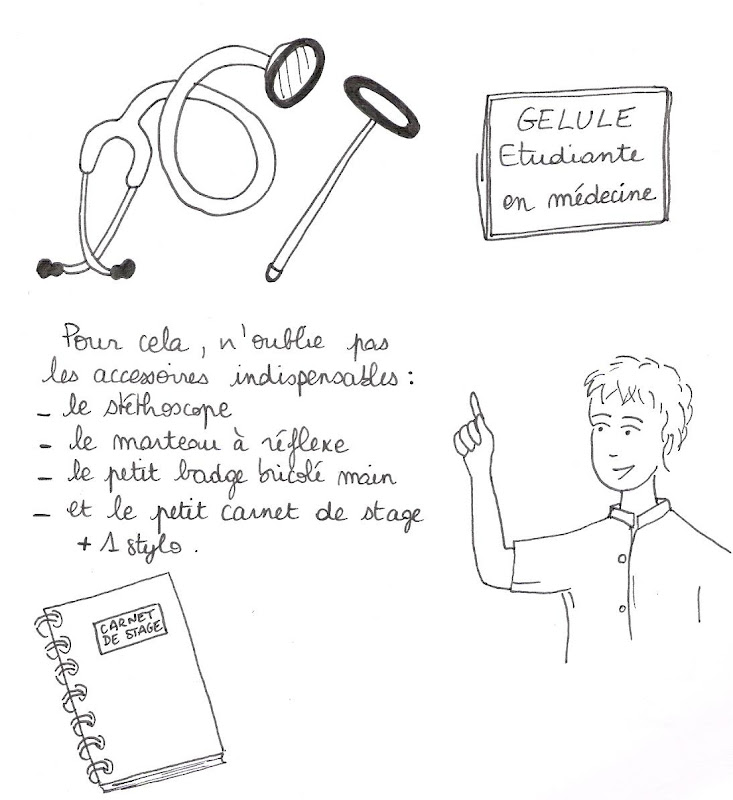 GELULE
Etudiante
en médecine
Pour cela, n'oublie pas
les accessoires indispensables :
- le stéthoscope
- le marteau à réflexe
- le petit badge bricolé main
- et le petit carnet de stage
+ 1 stylo.
CARNET
DE STAGE